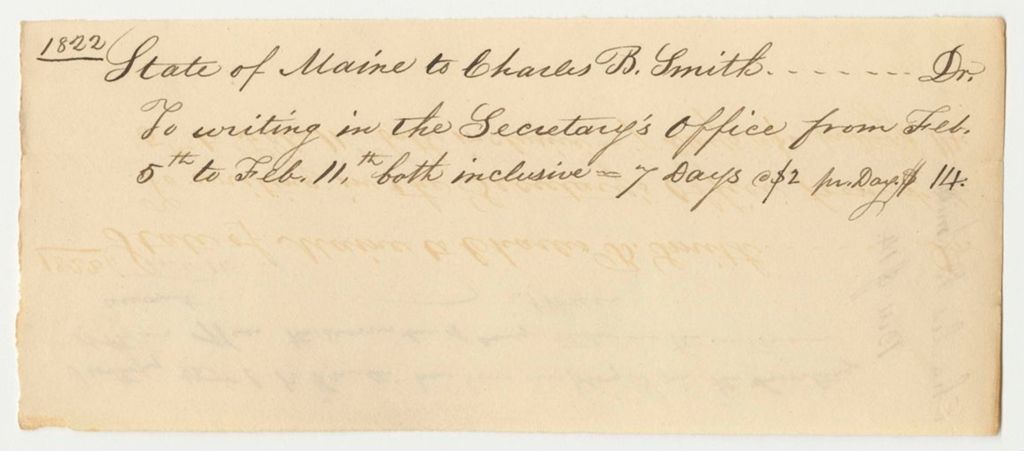 1822 State of Maine to Charles B. Smith. - - - - - - - Dr.
To writing in the Secretary's Office from Feb.
5th to Feb. 11.th both inclusive = 7 Days @ $2 pr. Day. $ 14.